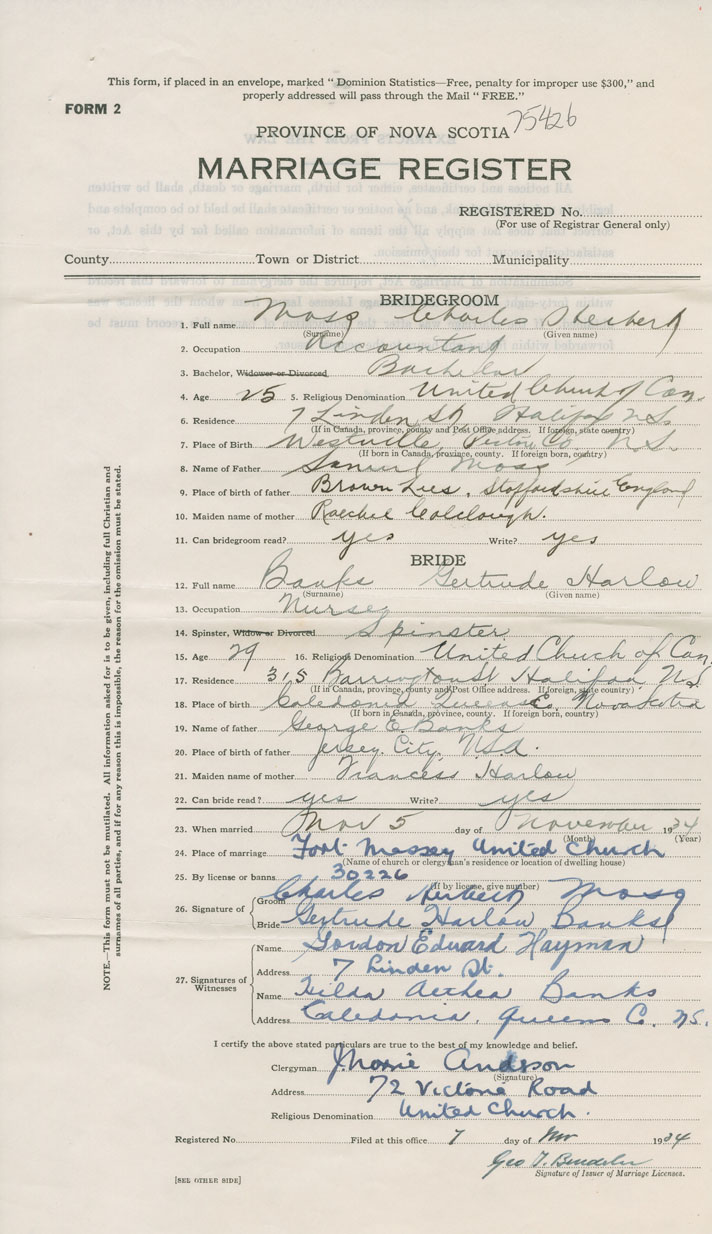 This form, if placed in an envelope, marked "Dominion Statistics—Free, penalty for improper use $300," and
properly addressed will pass through the Mail "FREE."
FORM 2
75426
PROVINCE OF NOVA SCOTIA
MARRIAGE REGISTER
REGISTERED No.
(For use of Registrar General only)
County Town or District Municipality
BRIDEGROOM
1. Full name Moss Charles Herbert
(Surname) (Given name)
2. Occupation Accountant
3. Bachelor, Widower or Divorced Bachelor
4. Age 25 5. Religious Denomination United Church of Can.
6. Residence 7 Linden St Halifax N.S.
(If in Canada, province, county and Post Office address. If foreign, state country)
7. Place of Birth Westville, Pictou Co, N.S.
(If born in Canada, province, county. If foreign born, country)
8. Name of Father Samuel Moss
9. Place of birth of father Brown Lees, Staffordshire England
10. Maiden name of mother Raechel Colclough.
11. Can bridegroom read? yes Write? yes
BRIDE
12. Full name Banks Gertrude Harlow
(Surname) (Given name)
13. Occupation Nurse
14. Spinster, Widow or Divorced Spinster
15. Age 29 16. Religious Denomination United Church of Can.
17. Residence 315 Barrington St Halifax N.S.
(If in Canada, province, county and Post Office address. If foreign, state country)
18. Place of birth Caledonia Queens Co, Nova Scotia
(If born in Canada, province, county. If foreign born, country)
19. Name of father George E. Banks
20. Place of birth of father Jersey City, U.S.A.
21. Maiden name of mother Frances Harlow
22. Can bride read? yes Write? yes
23. When married Nov 5 day of November 1934
(Month) (Year)
24. Place of marriage Fort Massey United Church
(Name of church or clergyman's residence or location of dwelling house)
25. By license or banns 30226
(If by license, give number)
26. Signature of Groom Charles Herbert Moss
Bride Gertrude Harlow Banks
27. Signatures of Witnesses Name Gordon Edward Hayman
Address 7 Linden St.
Name Hilda Aethea Banks
Address Caledonia, Queens C. N.S.
I certify the above stated particulars are true to the best of my knowledge and belief.
Clergyman
(Signature)
Address 72 Victoria Road
Religious Denomination United Church.
Registered No. Filed at this office 7 day of Nov 1934
Geo T.
Signature of Issuer of Marriage Licenses.
[SEE OTHER SIDE]
NOTE.—This form must not be mutilated. All information asked for is to be given, including full Christian and
surnames of all parties, and if for any reason this is impossible, the reason for the omission must be stated.